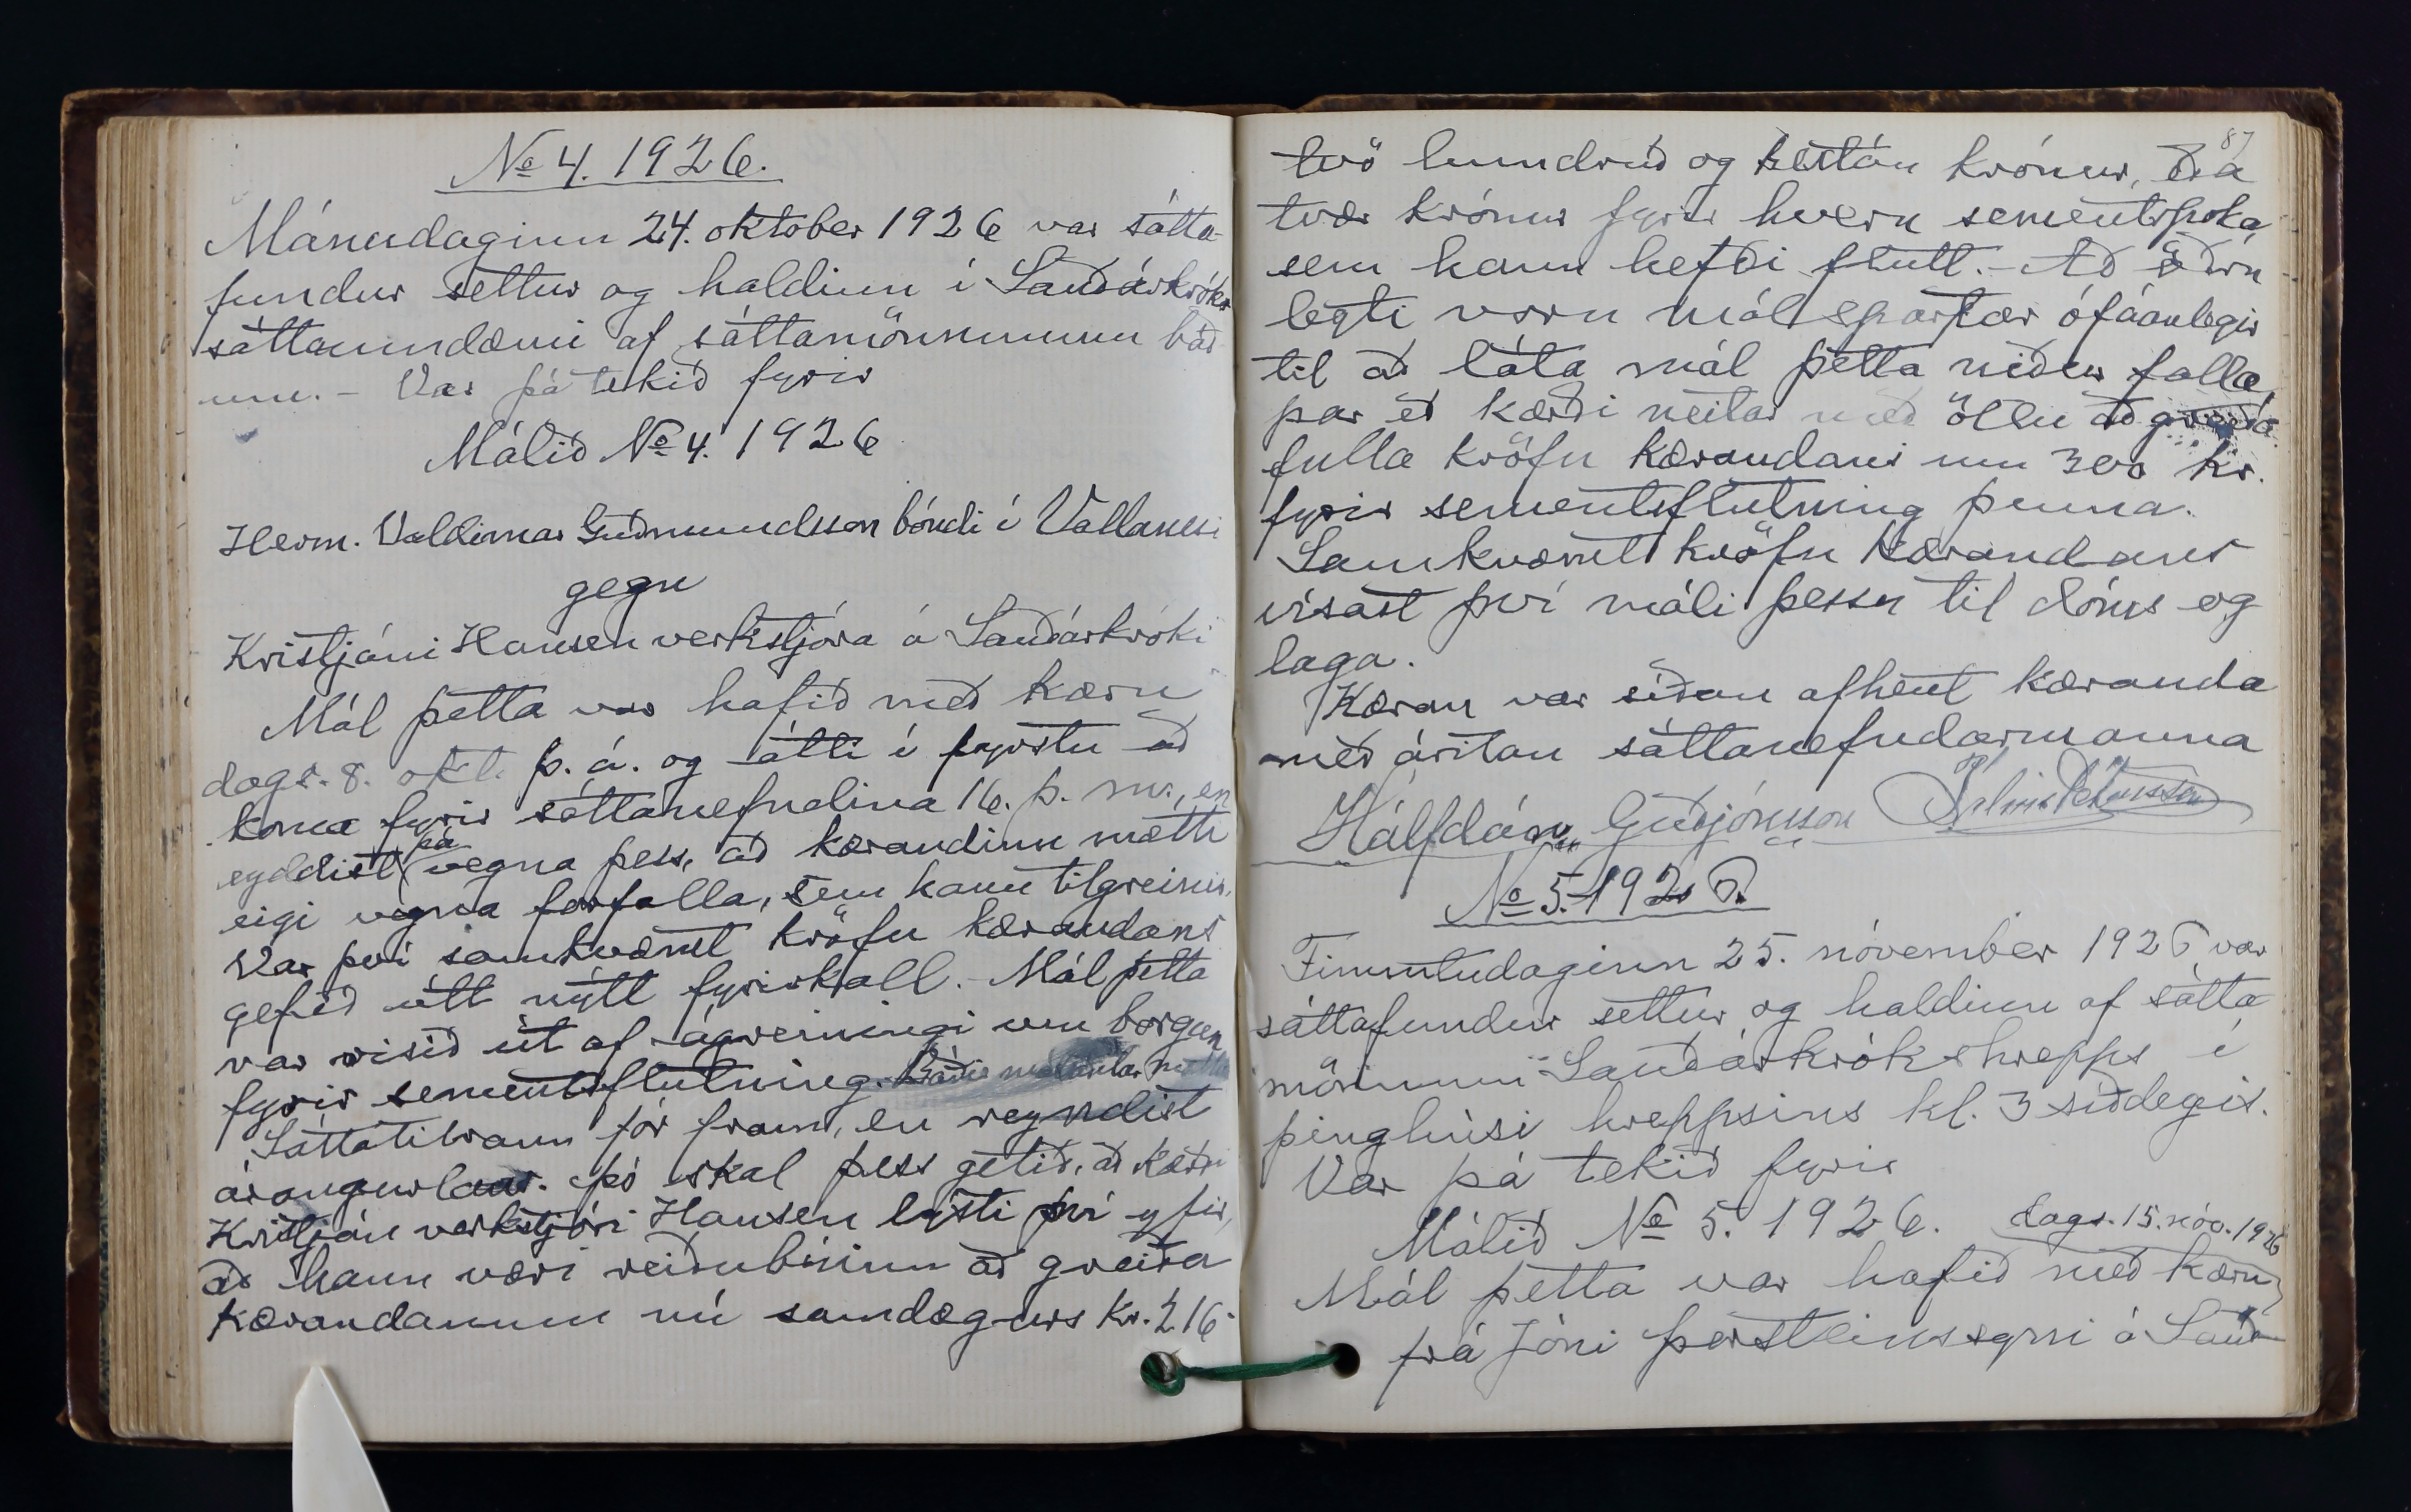 No 4. 1926.
Mánudaginn 24. oktober 1926 var sátta-
fundur settur og haldinn í Sauðárkróks
sáttaumdæmi af sáttamönnunum báð-
um. - Var þá tekið fyrir
Málið No 4. 1926
Herm. Valdimar Guðmundsson bóndi í Vallanesi
gegn
Kristjáni Hansen verkstjóra á Sauðárkróki
Mál þetta var hafið með kæru
dags. 8. okt. þ. á. og átti í fyrstu að
koma fyrir sáttanefndina 16. þ. m., en
eyddist þá vegna þess, að kærandinn mætti
eigi vegna forfalla, sem hann tilgreinir.
Var því samkvæmt kröfu kærandans
gefið útt nýtt fyrirkall. - Mál þetta
var risið út af ágreiningi um borgun
fyrir sementsflutning. Báðir málsaðilar
Sáttatilraun fór fram, en reyndist
árangurlaus. Þó skal þess getið, að kærði
Kristján verkstjóri Hansen lýsti því yfir,
að hann væri reiðubúinn að greiða
kærandanum nú samdægurs kr. 216
87
tvö hundruð og sextán krónur, eða
tvær krónur fyrir hvern sementspoka
sem hann hefði flutt. - Að öðru
leyti voru málspartar ófáanlegir
til að láta mál þetta niður falla
þar eð kærði neitar með öllu að greiða
fulla kröfu kærandans um 300 kr.
fyrir sementsflutning þenna.
Samkvæmt kröfu kærandans
vísast því máli þessu til dóms og
laga.
Kæran var síðan afhent kæranda
með áritan sáttanefndarmanna
Hálfdán Guðjónsson Pálmi Pétursson
No 5. 1926.
Fimmtudaginn 25. nóvember 1926 var
sáttafundur settur og haldinn af sátta
mönnum Sauðárkrókshrepps í
þinghúsi hreppsins kl. 3 síðdegis.
Var þá tekið fyrir
Málið No 5. 1926. dags. 15. nóv. 1926
Mál þetta var hafið með kæru
frá Jóni Þorsteinssyni á Sauð